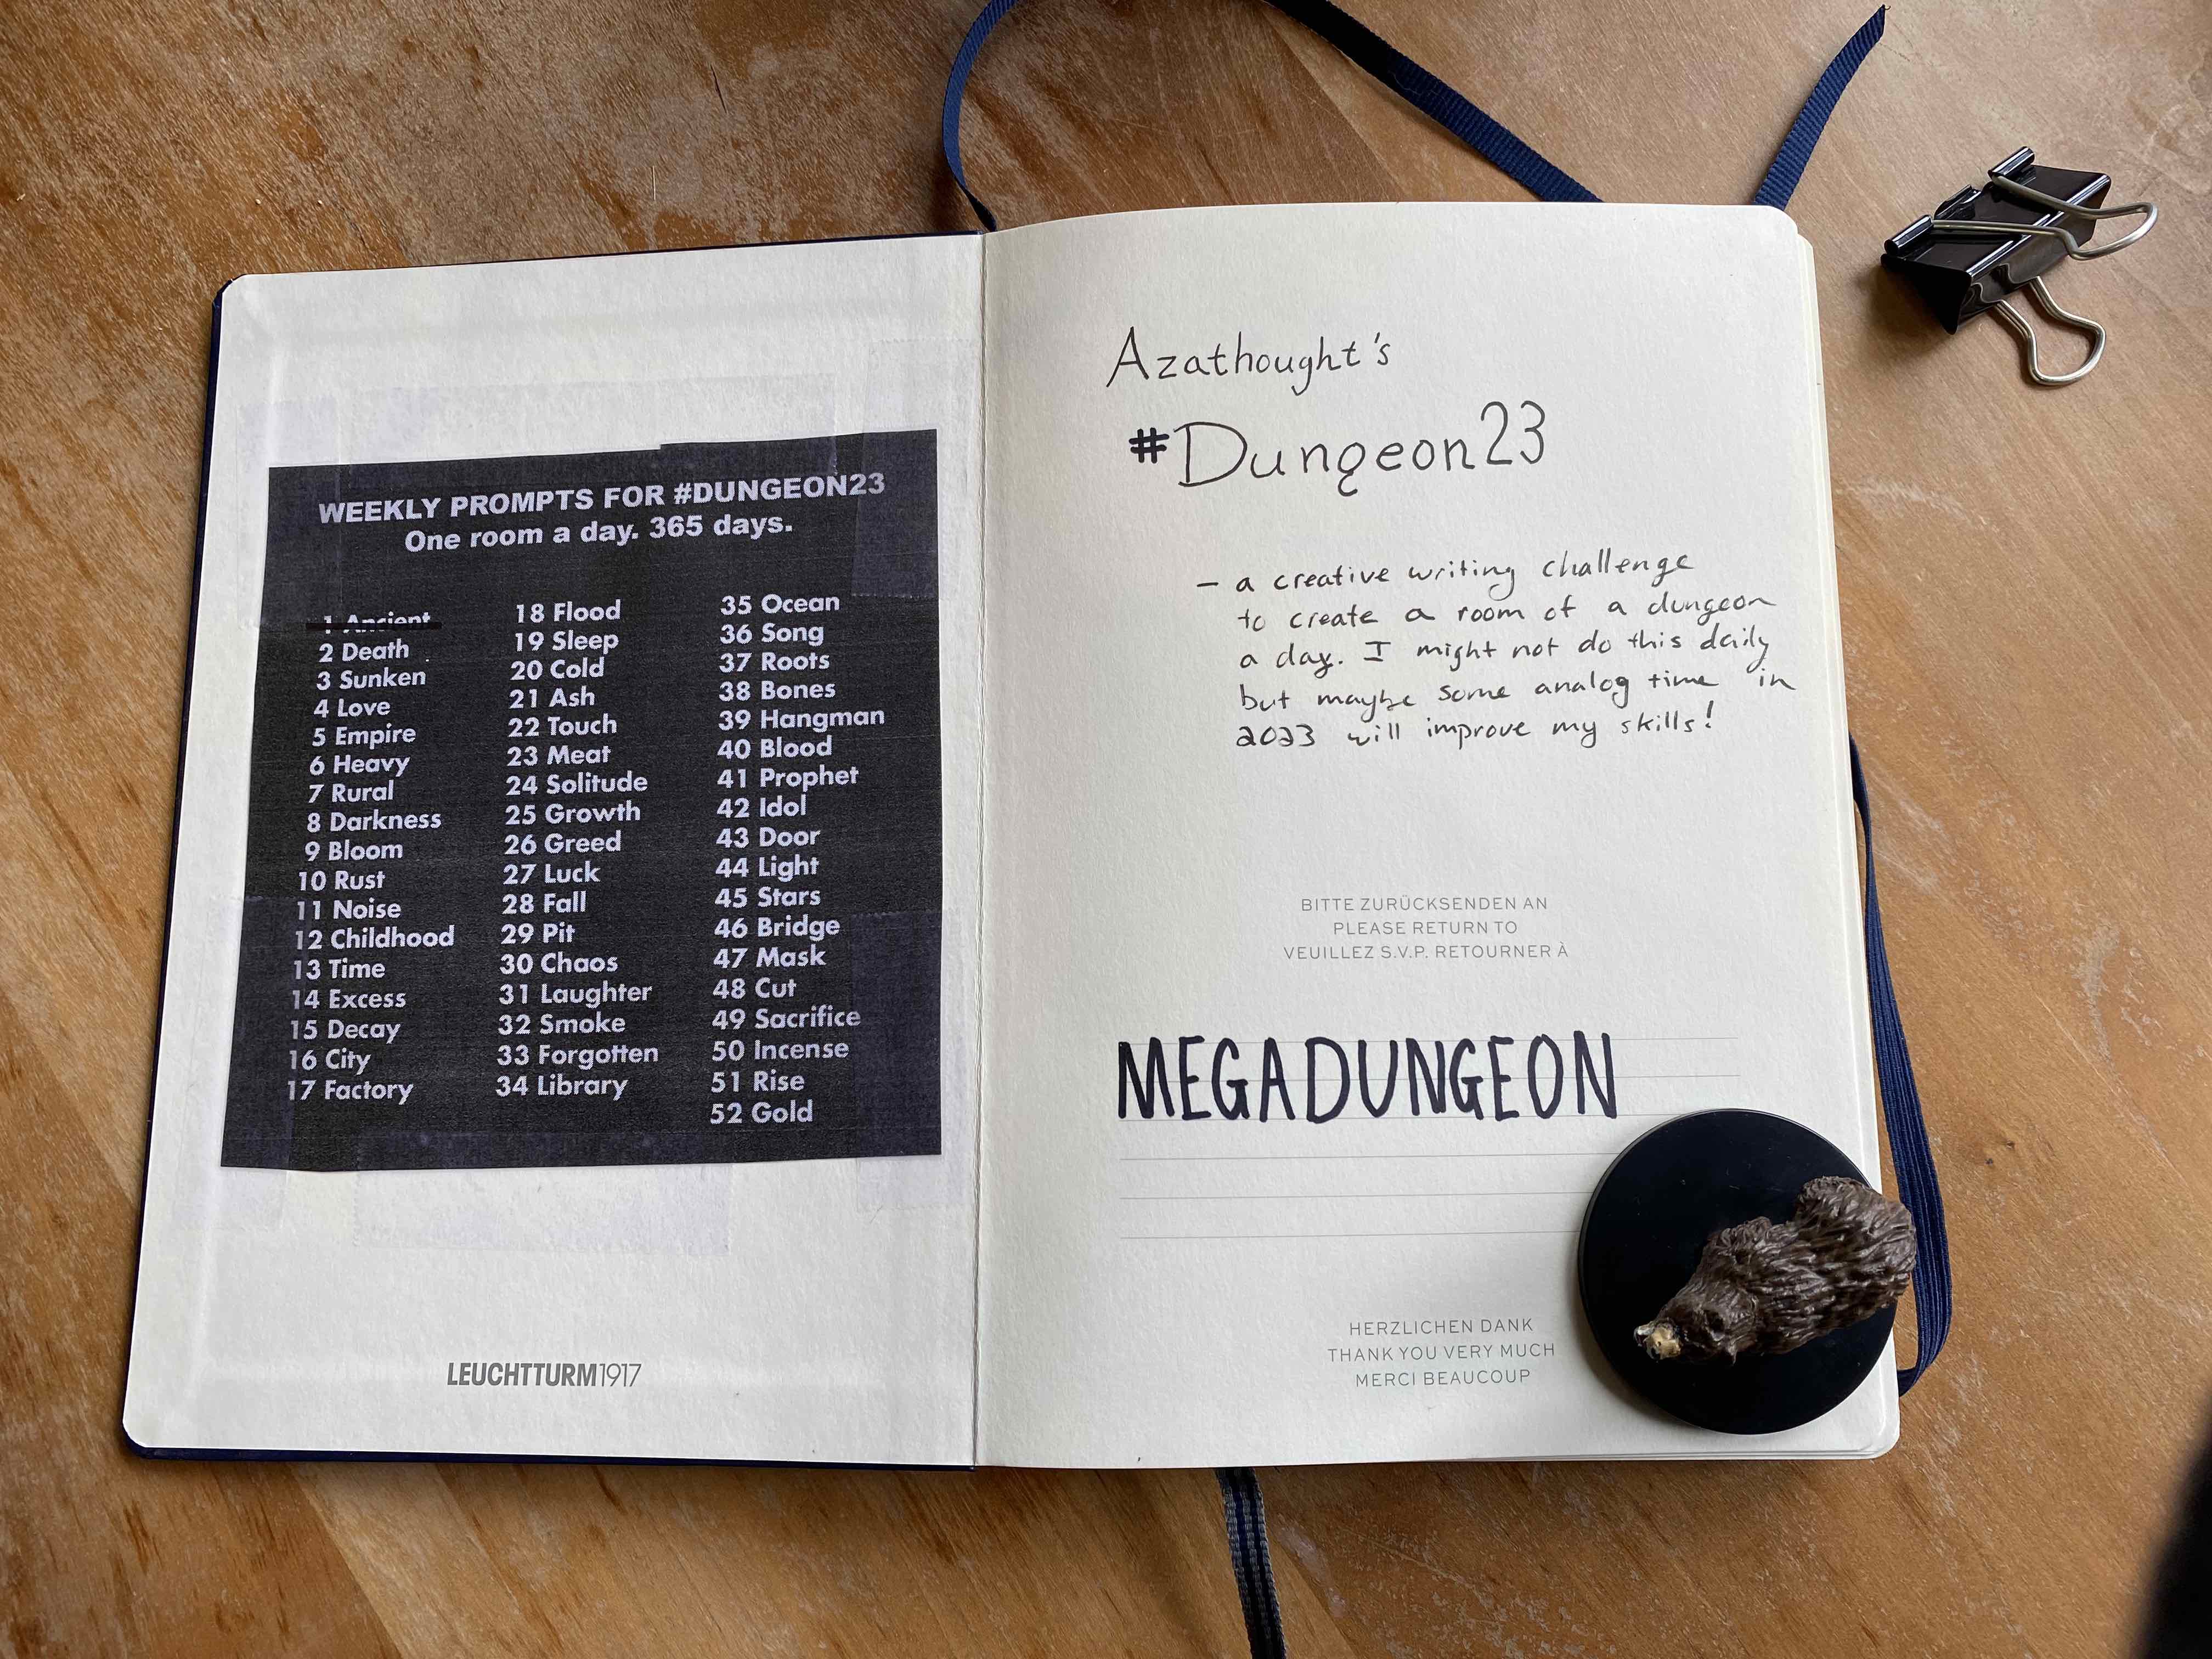 WEEKLY PROMPTS FOR #DUNGEON23
One room a day. 365 days.
1 Ancient
2 Death
3 Sunken
4 Love
5 Empire
6 Heavy
7 Rural
8 Darkness
9 Bloom
10 Rust
11 Noise
12 Childhood
13 Time
14 Excess
15 Decay
16 City
17 Factory
18 Flood
19 Sleep
20 Cold
21 Ash
22 Touch
23 Meat
24 Solitude
25 Growth
26 Greed
27 Luck
28 Fall
29 Pit
30 Chaos
31 Laughter
32 Smoke
33 Forgotten
34 Library
35 Ocean
36 Song
37 Roots
38 Bones
39 Hangman
40 Blood
41 Prophet
42 Idol
43 Door
44 Light
45 Stars
46 Bridge
47 Mask
48 Cut
49 Sacrifice
50 Incense
51 Rise
52 Gold
LEUCHTTURM1917
Azathought's
#Dungeon23
- a creative writing challenge
to create a room of a dungeon
a day. I might not do this daily
but maybe some analog time in
2023 will improve my skills!
BITTE ZURÜCKSENDEN AN
PLEASE RETURN TO
VEUILLEZ S.V.P. RETOURNER À
MEGADUNGEON
HERZLICHEN DANK
THANK YOU VERY MUCH
MERCI BEAUCOUP